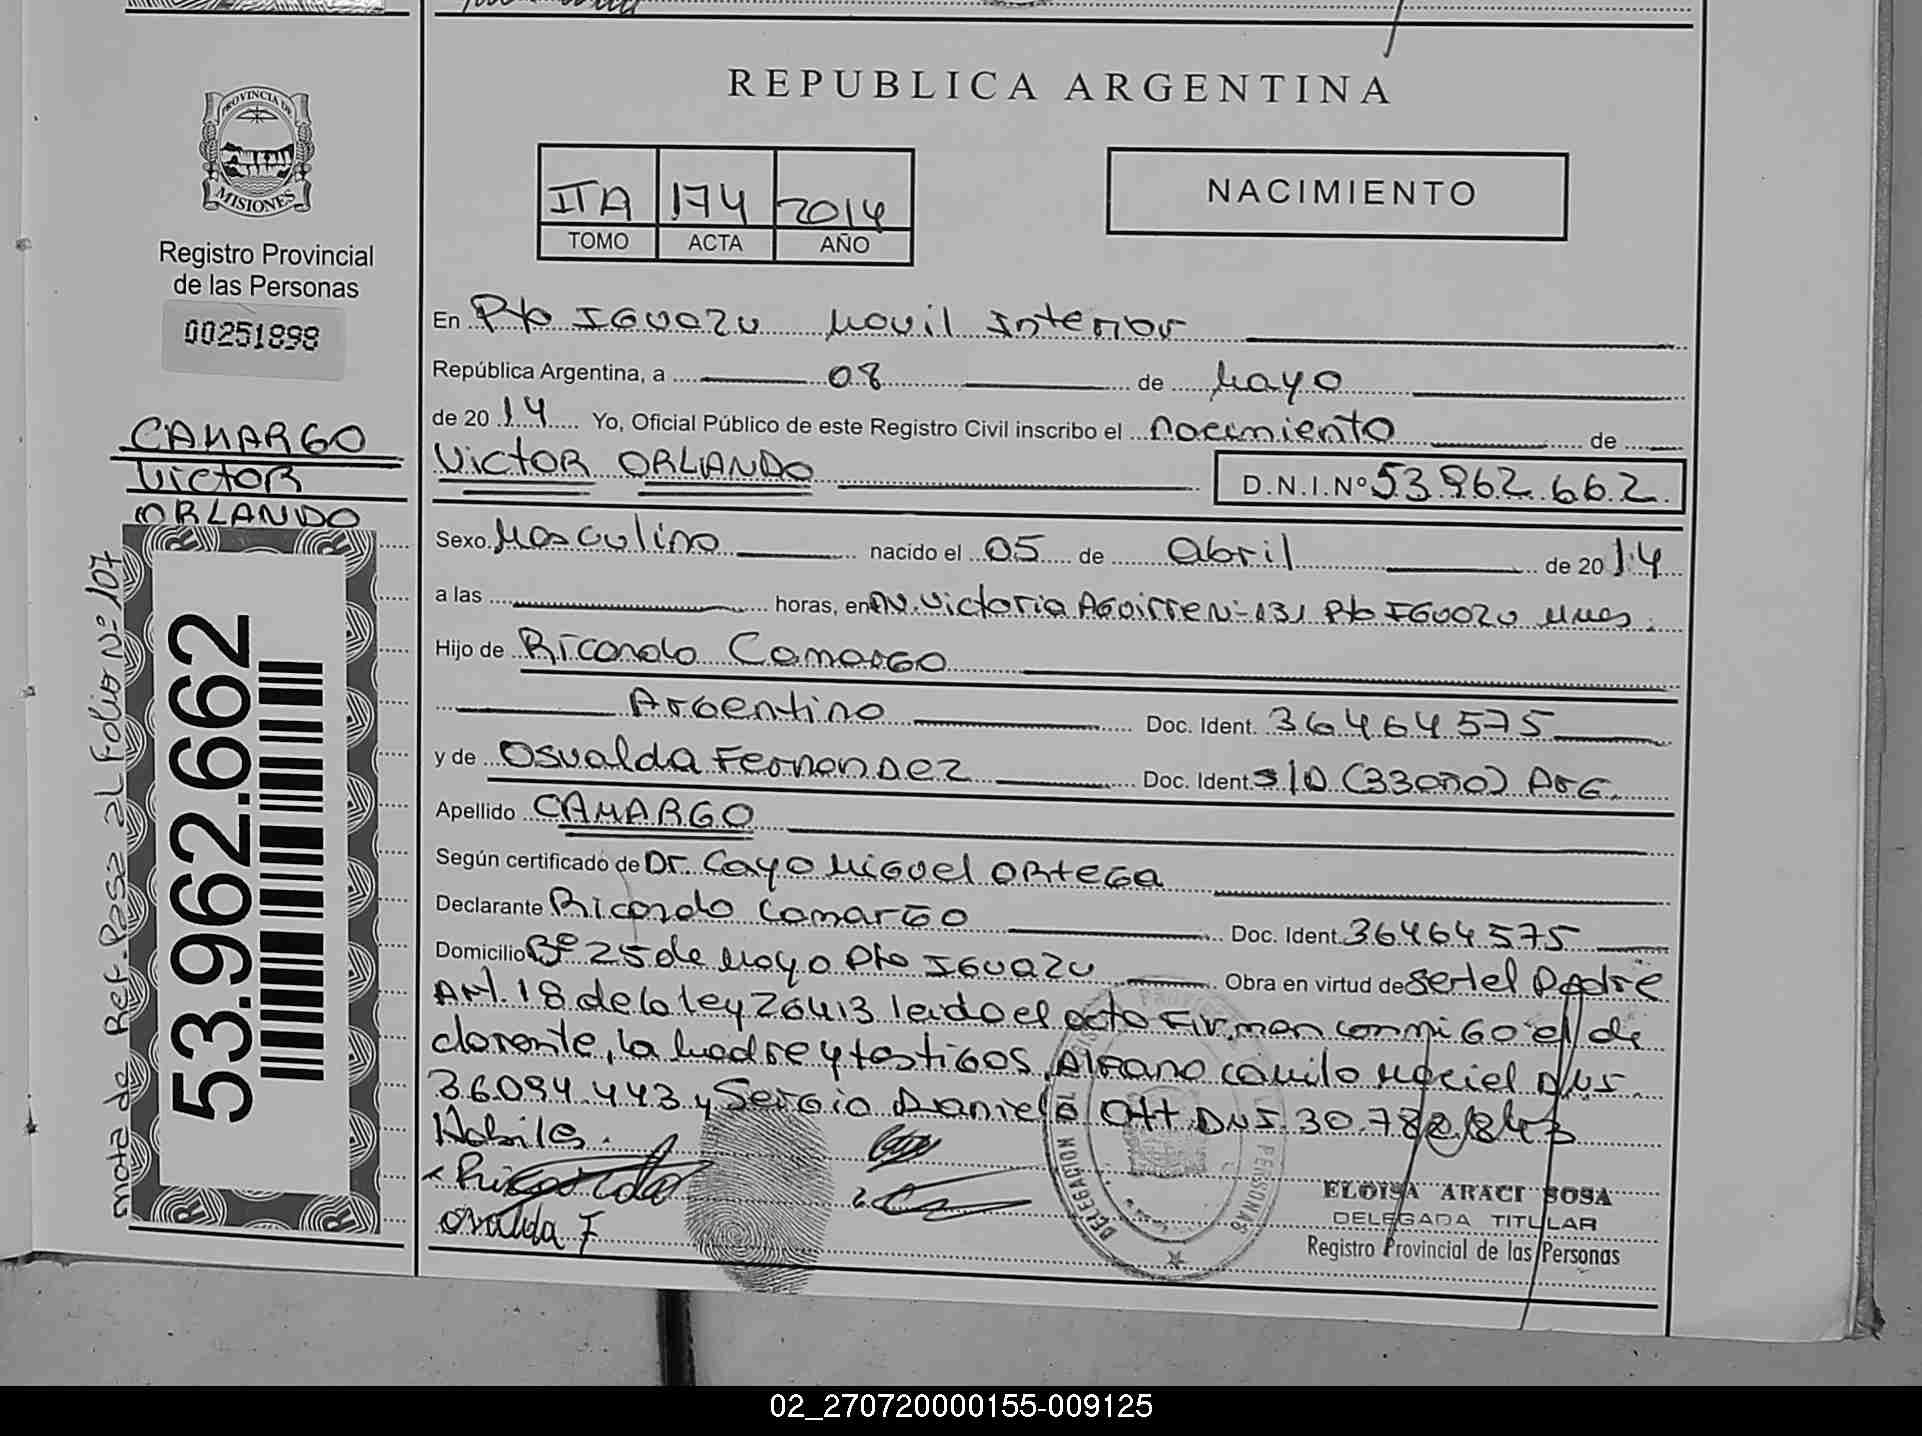 REPUBLICA ARGENTINA
PROVINCIA DE
MISIONES
Registro Provincial
de las Personas
00251898
ITA 174 2014
TOMO ACTA AÑO
NACIMIENTO
En Pto IGUAZU Movil Interior
República Argentina, a 08 de Mayo
de 2014 Yo, Oficial Público de este Registro Civil inscribo el nacimiento de
VICTOR ORLANDO D.N.I.Nº 53.962.662
Sexo Masculino nacido el 05 de Abril de 2014
a las horas, en AV. Victoria Aguirre Nº 131 Pto IGUAZU Mnes.
Hijo de Ricardo Camargo
Argentino Doc. Ident. 36464575
y de Osvalda Fernandez Doc. Ident. S/D (33 año) Arg.
Apellido CAMARGO
Según certificado de Dr. Cayo Miguel Ortega
Declarante Ricardo Camargo Doc. Ident. 36464575
Domicilio Bº 25 de Mayo Pto IGUAZU Obra en virtud de ser el Padre
Art. 18 de la ley 26413 leido el acto Firman conmigo el de
clarante, la Madre y testigos, Camilo Maciel DNI.
36.094.443 y Sergio Daniel Ott DNI. 30.782.843
Habiles.
Ricardo
Osvalda F
DELEGACION MOVIL
PERSONAS
ELOISA ARACI SOSA
DELEGADA TITULAR
Registro Provincial de las Personas
CAMARGO
VICTOR
ORLANDO
53.962.662
nota de Ref. Pasa al Folio Nº 107
02_270720000155-009125